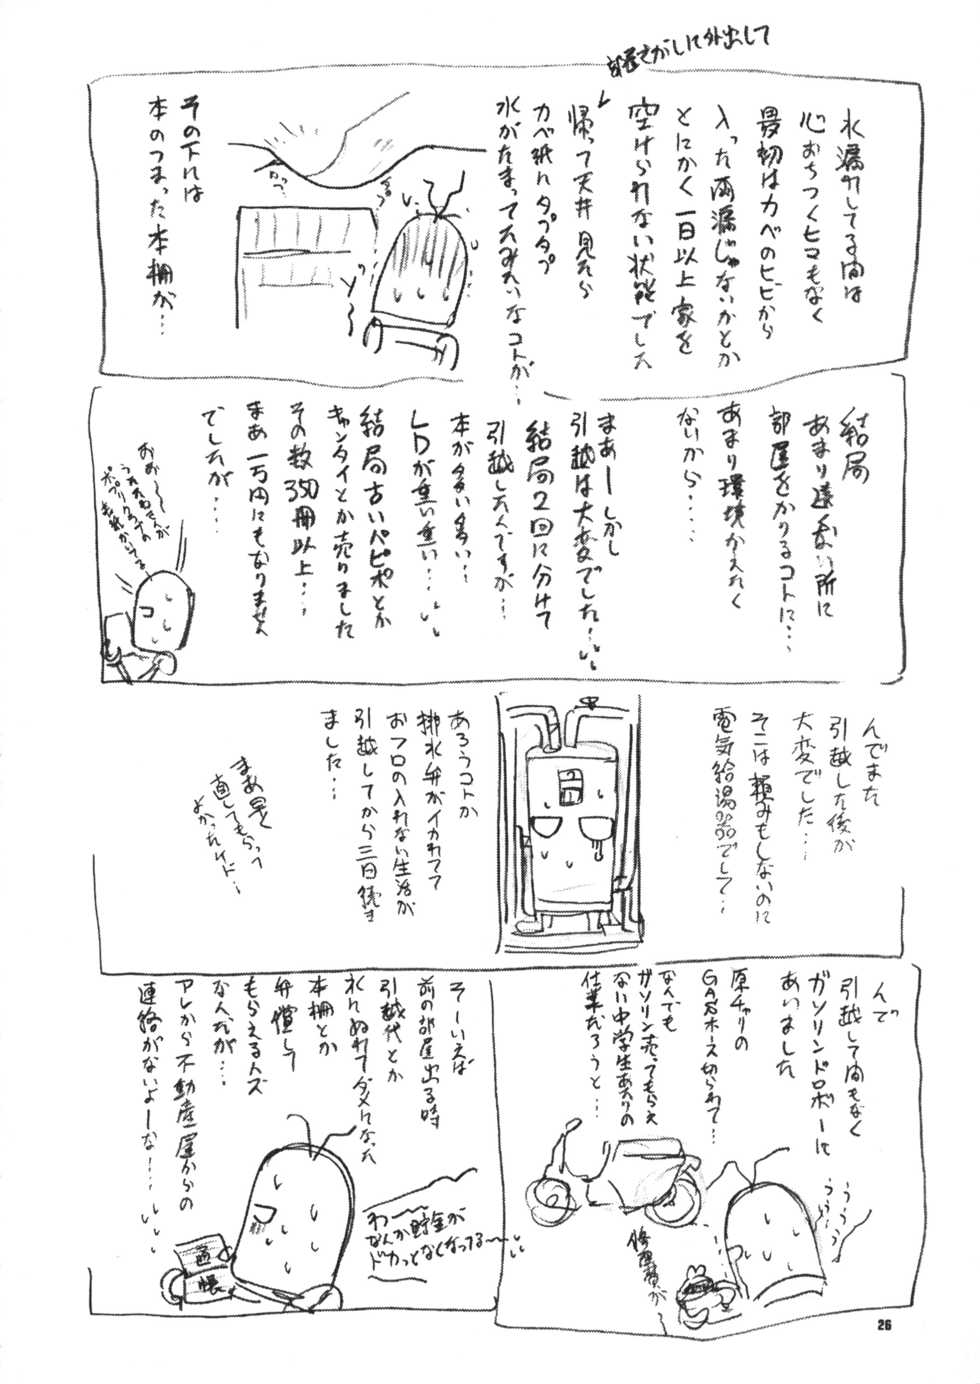 水漏れしてる間は
心おちつくヒマもなく
最初はカベのヒビから
入った雨漏じゃないかとか
とにかく一日以上家を
空けられない状態でした
部屋さがしに外出して
帰って天井見たら
カベ紙にタプタプ
水がたまってるみたいなコトが…
その下には
本のつまった本棚が…
結局
あまり遠くない所に
部屋をかりるコトに…
あまり環境かえたく
ないから……
まぁーしかし
引越は大変でした…
結局2回に分けて
引越したんですが…
本が多い多い…
LDが重い重い…
結局古いパピポとか
キャンタイとか売りました
その数350冊以上…
まあ一万円にもなりません
でしたが…
おお〜
うたたねさんが
ポプリクラブの
表紙かいてる
んでまた
引越した後が
大変でした…
そこは頼みもしないのに
電気給湯器でして…
あろうコトか
排水弁がイカれてて
おフロの入れない生活が
引越してから三日続き
ました…
まあ早く
直してもらって
よかったけど…
んで
引越して間もなく
ガソリンドロボーに
あいました
原チャリの
GASホース切られて…
なんでも
ガソリン売ってもらえ
ない中学生あたりの
仕業だろうと…
うううう
ううう
修理費が〜
そーいえば
前の部屋出る時
引越代とか
水にぬれてダメになった
本棚とか
弁償して
もらえるハズ
なんだが…
アレから不動産屋からの
連絡がないよーな…
わ〜
なんか貯金が
ドカっとなくなってる〜
通帳
26